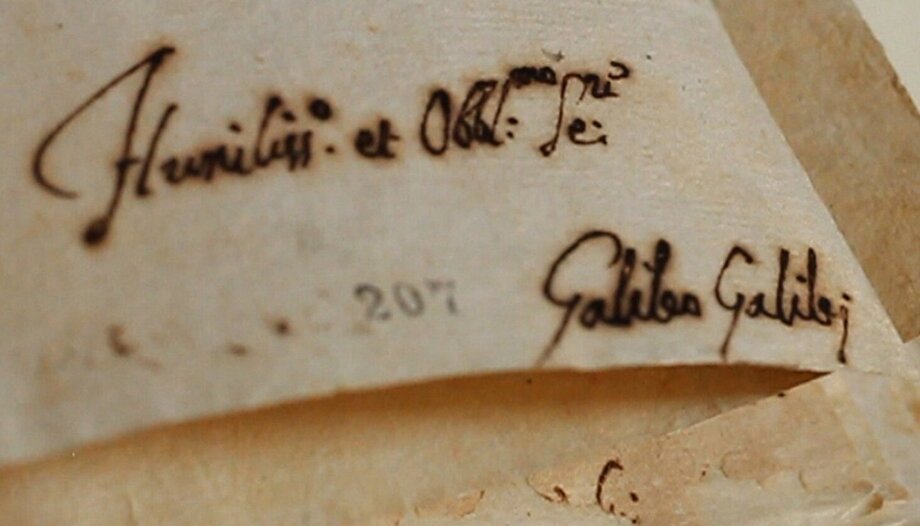 Humiliss.º et Obbl:mo Se:re
207 Galileo Galilei